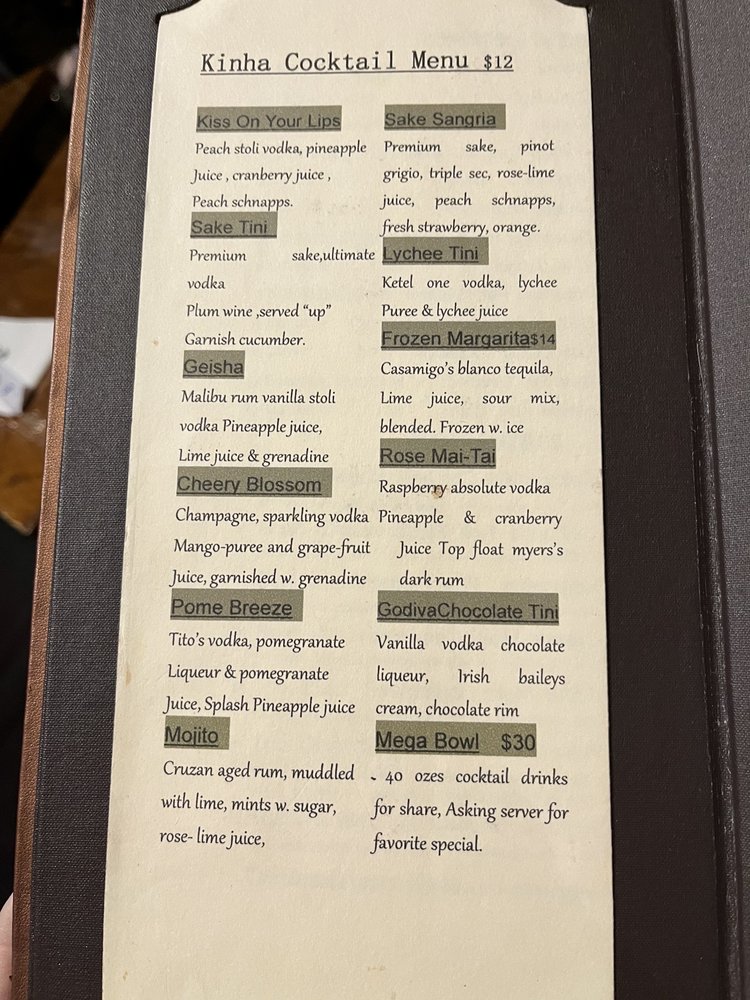 Kinha Cocktail Menu $12
Kiss On Your Lips
Peach stoli vodka, pineapple
Juice , cranberry juice ,
Peach schnapps.
Sake Tini
Premium sake,ultimate
vodka
Plum wine ,served “up”
Garnish cucumber.
Geisha
Malibu rum vanilla stoli
vodka Pineapple juice,
Lime juice & grenadine
Cheery Blossom
Champagne, sparkling vodka
Mango-puree and grape-fruit
Juice, garnished w. grenadine
Pome Breeze
Tito’s vodka, pomegranate
Liqueur & pomegranate
Juice, Splash Pineapple juice
Mojito
Cruzan aged rum, muddled
with lime, mints w. sugar,
rose- lime juice,
Sake Sangria
Premium sake, pinot
grigio, triple sec, rose-lime
juice, peach schnapps,
fresh strawberry, orange.
Lychee Tini
Ketel one vodka, lychee
Puree & lychee juice
Frozen Margarita$14
Casamigo’s blanco tequila,
Lime juice, sour mix,
blended. Frozen w. ice
Rose Mai-Tai
Raspberry absolute vodka
Pineapple & cranberry
Juice Top float myers’s
dark rum
GodivaChocolate Tini
Vanilla vodka chocolate
liqueur, Irish baileys
cream, chocolate rim
Mega Bowl $30
- 40 ozes cocktail drinks
for share, Asking server for
favorite special.